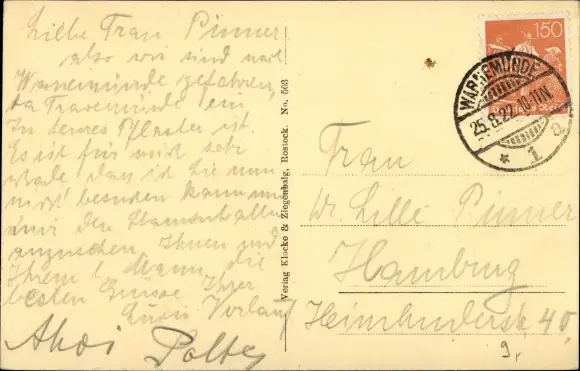 Liebe Frau Pinner
also wir sind nach
Warnemünde gefahren,
da Travemünde ein
zu teures Pflaster ist.
Es ist für mich sehr
schade, dass ich Sie nun
nicht besuchen kann, um
mir den Stammhalter
anzusehen. Ihnen und
Ihrem l. Mann die
besten Grüsse Ihrer
Ahoi Polty
Verlag Klocke & Ziegenbalg, Rostock. No. 503
150
WARNEMÜNDE
25.8.22
* 1 a
Frau
Dr. Lilli Pinner
Hamburg
Heimhuderstr. 40